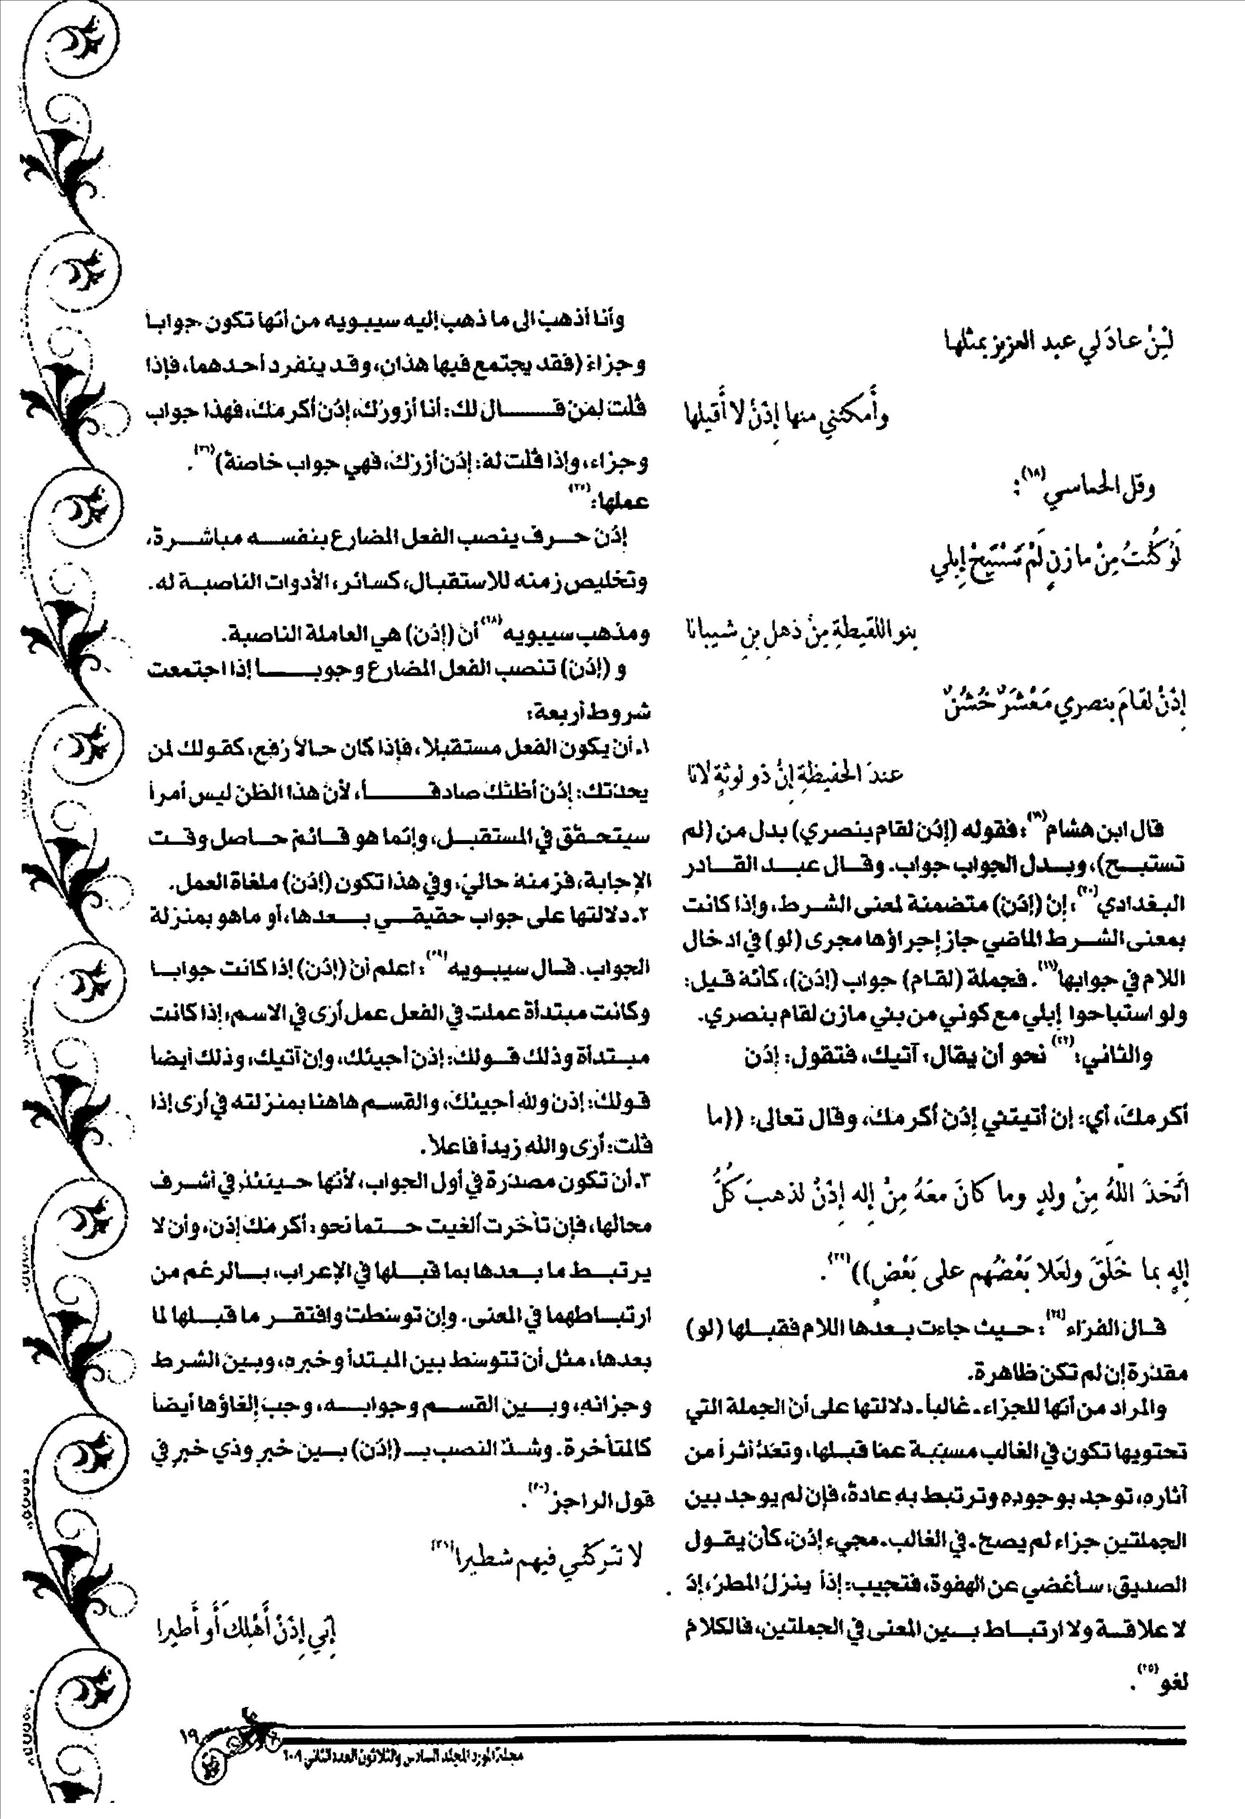 لئِنْ عادَ لي عبد العزيز بمثلها
وأَمكنني منها إِذَنْ لا أُقيلها
وقل الحماسي(١٨):
لَوْ كُنْتُ مِنْ مازنٍ لَمْ تَسْتَبِحْ إِبلي
بنو اللقيطةِ مِنْ ذهلِ بنِ شيبانا
إِذَنْ لقامَ بنصري مَعْشَرٌ خُشُنٌ
عندَ الحفيظةِ إِنْ ذو لوثةٍ لانا
قال ابن هشام(١٩): فقوله (إذن لقام بنصري) بدل من (لم
تستبح)، وبدل الجواب جواب. وقال عبد القادر
البغدادي(٢٠): إنّ (إذن) متضمنة لمعنى الشرط، وإذا كانت
بمعنى الشرط الماضي جاز إجراؤها مجرى (لو) في ادخال
اللام في جوابها(٢١). فجملة (لقام) جواب (إذن)، كأنه قيل:
ولو استباحوا إبلي مع كوني من بني مازن لقام بنصري.
والثاني:(٢٢) نحو أن يقال: آتيك، فتقول: إذن
أكرمك، أي: إن أتيتني إذن أكرمك، وقال تعالى: ((ما
اتَّخَذَ اللّهُ مِنْ ولدٍ وما كانَ معَهُ مِنْ إله إِذَنْ لذهبَ كُلُّ
إِلهٍ بما خَلَقَ ولَعَلا بَعْضُهم على بَعْضٍ))(٢٣).
قال الفرّاء(٢٤): حيث جاءت بعدها اللام فقبلها (لو)
مقدّرة إن لم تكن ظاهرة.
والمراد من أنها للجزاء ـ غالباً ـ دلالتها على أن الجملة التي
تحتويها تكون في الغالب مسبّبة عمّا قبلها، وتعدّ أثراً من
آثاره، توجد بوجوده وترتبط به عادة، فإن لم يوجد بين
الجملتين جزاء لم يصح ـ في الغالب ـ مجيء إذن، كأن يقول
الصديق: سأغضي عن الهفوة، فتجيب: إذاً ينزل المطر، إذ
لا علاقة ولا ارتباط بين المعنى في الجملتين، فالكلام
لغو(٢٥).
وأنا أذهب الى ما ذهب إليه سيبويه من أنها تكون جواباً
وجزاء (فقد يجتمع فيها هذان، وقد ينفرد أحدهما، فإذا
قلت لمن قال لك: أنا أزورك، إذن أكرمك، فهذا جواب
وجزاء، وإذا قلت له: إذن أزرك، فهي جواب خاصة)(٢٦).
عملها:(٢٧)
إذن حرف ينصب الفعل المضارع بنفسه مباشرة،
وتخليص زمنه للاستقبال، كسائر، الأدوات الناصبة له.
ومذهب سيبويه(٢٨) أنّ (إذن) هي العاملة الناصبة.
و (إذن) تنصب الفعل المضارع وجوبا إذا اجتمعت
شروط أربعة:
١ـ أن يكون الفعل مستقبلا، فإذا كان حالاً رُفع، كقولك لمن
يحدّثك: إذن أظنّك صادقاً، لأن هذا الظن ليس أمراً
سيتحقق في المستقبل، وإنّما هو قائم حاصل وقت
الإجابة، فزمنه حاليّ، وفي هذا تكون (إذن) ملغاة العمل.
٢ـ دلالتها على جواب حقيقي بعدها، أو ماهو بمنزلة
الجواب. قال سيبويه(٢٩): اعلم أنّ (إذن) إذا كانت جوابا
وكانت مبتدأة عملت في الفعل عمل أرى في الاسم، إذا كانت
مبتدأة وذلك قولك: إذن أجيئك، وإن آتيك، وذلك أيضاً
قولك: إذن والله أجيئك، والقسم هاهنا بمنزلته في أرى إذا
قلت: أرى والله زيداً فاعلاً.
٣ـ أن تكون مصدّرة في أول الجواب، لأنها حينئذ في أشرف
محالها، فإن تأخرت ألغيت حتماً نحو: أكرمك إذن، وأن لا
يرتبط ما بعدها بما قبلها في الإعراب، بالرغم من
ارتباطهما في المعنى. وإن توسّطت وافتقر ما قبلها لما
بعدها، مثل أن تتوسّط بين المبتدأ وخبره، وبين الشرط
وجزائه، وبين القسم وجوابه، وجب إلغاؤها أيضاً
كالمتأخرة. وشذّ النصب بـ (إذن) بين خبرٍ وذي خبر في
قول الراجز(٣٠).
لا تتركنّي فيهم شطيرا(٣١)
إنّي إِذَنْ أَهْلِكَ أَو أَطيرا
١٩
مجلة المورد المجلد السادس والثلاثون العدد الثاني ٢٠٠٩